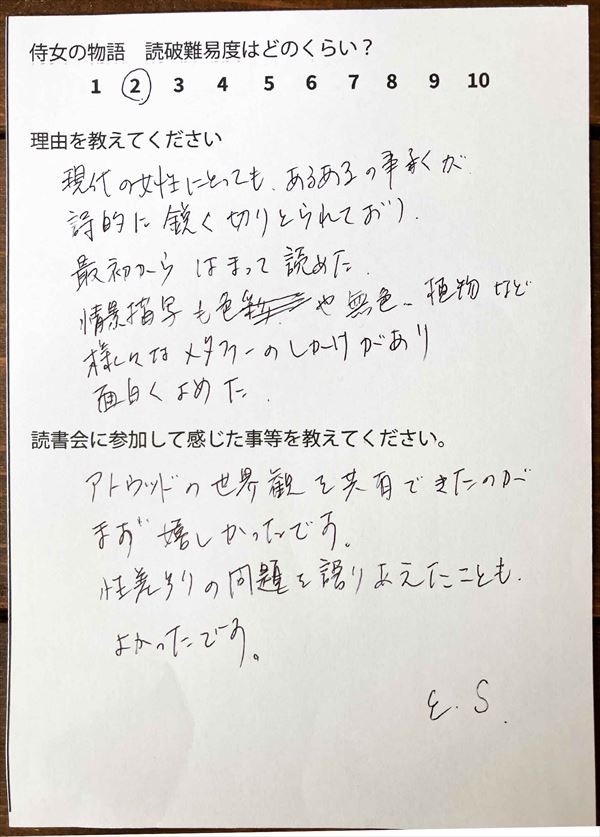 侍女の物語　読破難易度はどのくらい？
1 2 3 4 5 6 7 8 9 10
理由を教えてください
現代の女性にとっても、あるあるの事柄が
詩的に鋭く切りとられており、
最初からはまって読めた。
情景描写も色や無色、植物など
様々なメタファーのしかけがあり
面白くよめた。
読書会に参加して感じた事等を教えてください。
アトウッドの世界観を共有できたのが
まず嬉しかったです。
性差別の問題を語りあえたことも、
よかったです。
E. S.